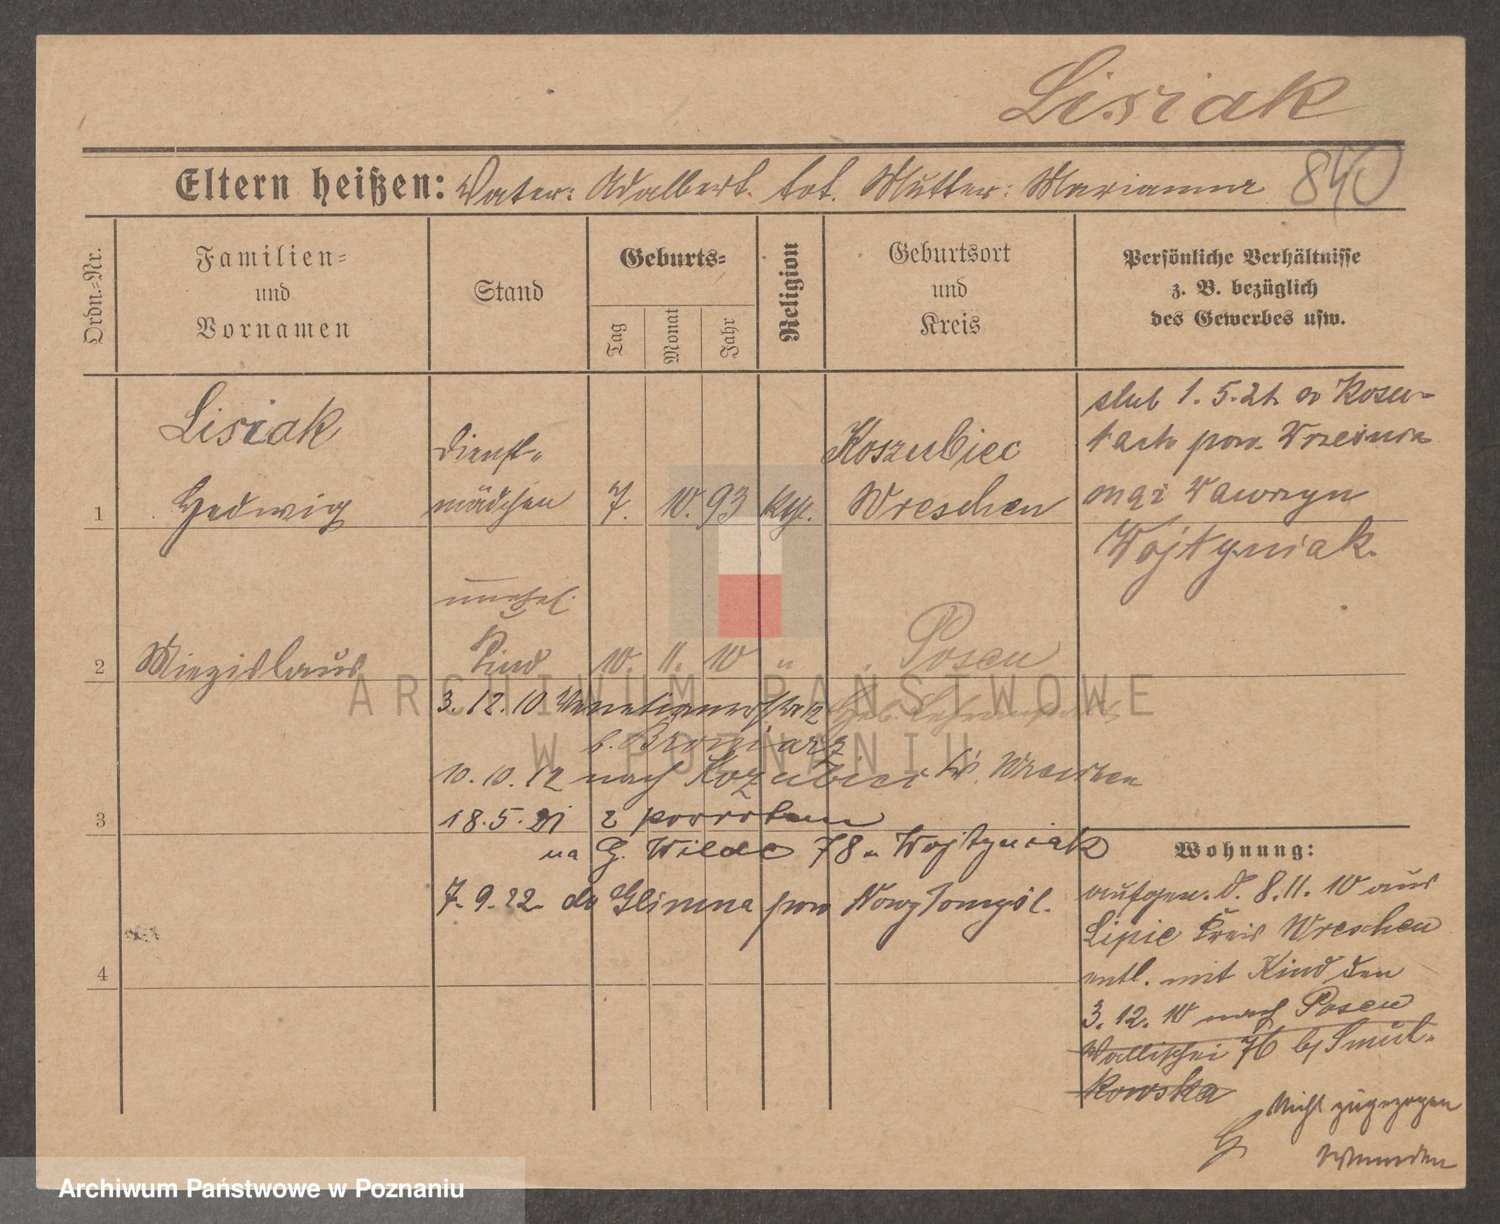 Lisiak
840
Eltern heißen: Vater: Adalbert tot. Mutter: Marianna
Ordn.-Nr.
Familien-
und
Vornamen
Stand
Geburts-
Tag
Monat
Jahr
Religion
Geburtsort
und
Kreis
Persönliche Verhältnisse
z. B. bezüglich
des Gewerbes usw.
1
Lisiak
Hedwig
Dienst-
mädchen
7. 10. 93 kth.
Koszubiec
Wreschen
ślub 1. 5. 21
pow. Września
mąż Wawrzyn
Wojtyniak.
2
Miezislaus
unehel.
Kind
10. 11. 10 "
Posen
3. 12. 10 Venetianerstr.
b. Broniarz
10. 10. 12 nach Kozubiec Kr. Wreschen
3
18. 5. 21 z powrotem
na G. Wilde 78 u Wojtyniak
7. 9. 22 do Glinna pow Nowy Tomyśl.
4
Wohnung:
aufgen. d. 8. 11. 10 aus
Lipie Kreis Wreschen
entl. mit Kind den
3. 12. 10 nach Posen
Wallischei 76 bei Smul-
kowska
Nicht zugezogen
ARCHIWUM PAŃSTWOWE
W POZNANIU
Archiwum Państwowe w Poznaniu